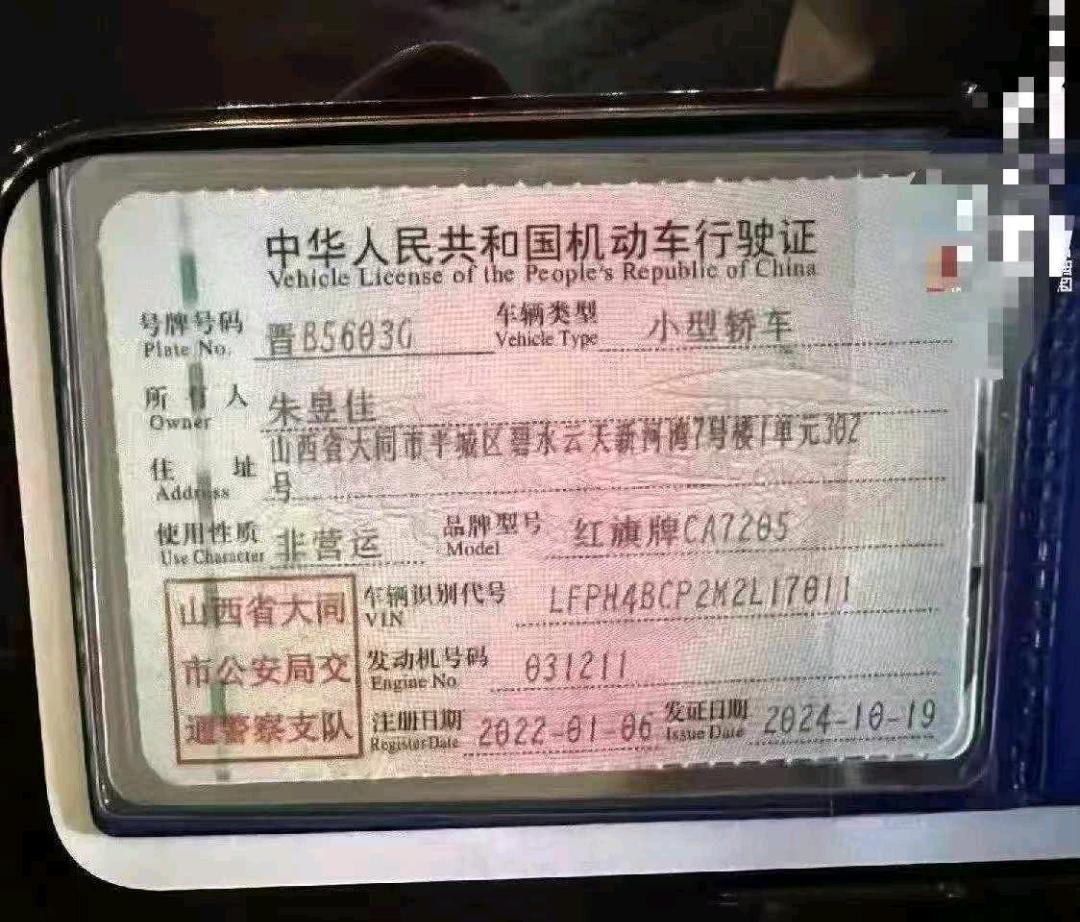 中华人民共和国机动车行驶证
Vehicle License of the People's Republic of China
号牌号码 晋B5603G 车辆类型 小型轿车
Plate No. Vehicle Type
所有人 朱昱佳
Owner
住址 山西省大同市平城区碧水云天新河湾7号楼1单元302
Address 号
使用性质 非营运 品牌型号 红旗牌CA7205
Use Character Model
山西省大同
市公安局交
通警察支队
车辆识别代号 LFPH4BCP2M2L17011
VIN
发动机号码 031211
Engine No.
注册日期 2022-01-06 发证日期 2024-10-19
Register Date Issue Date